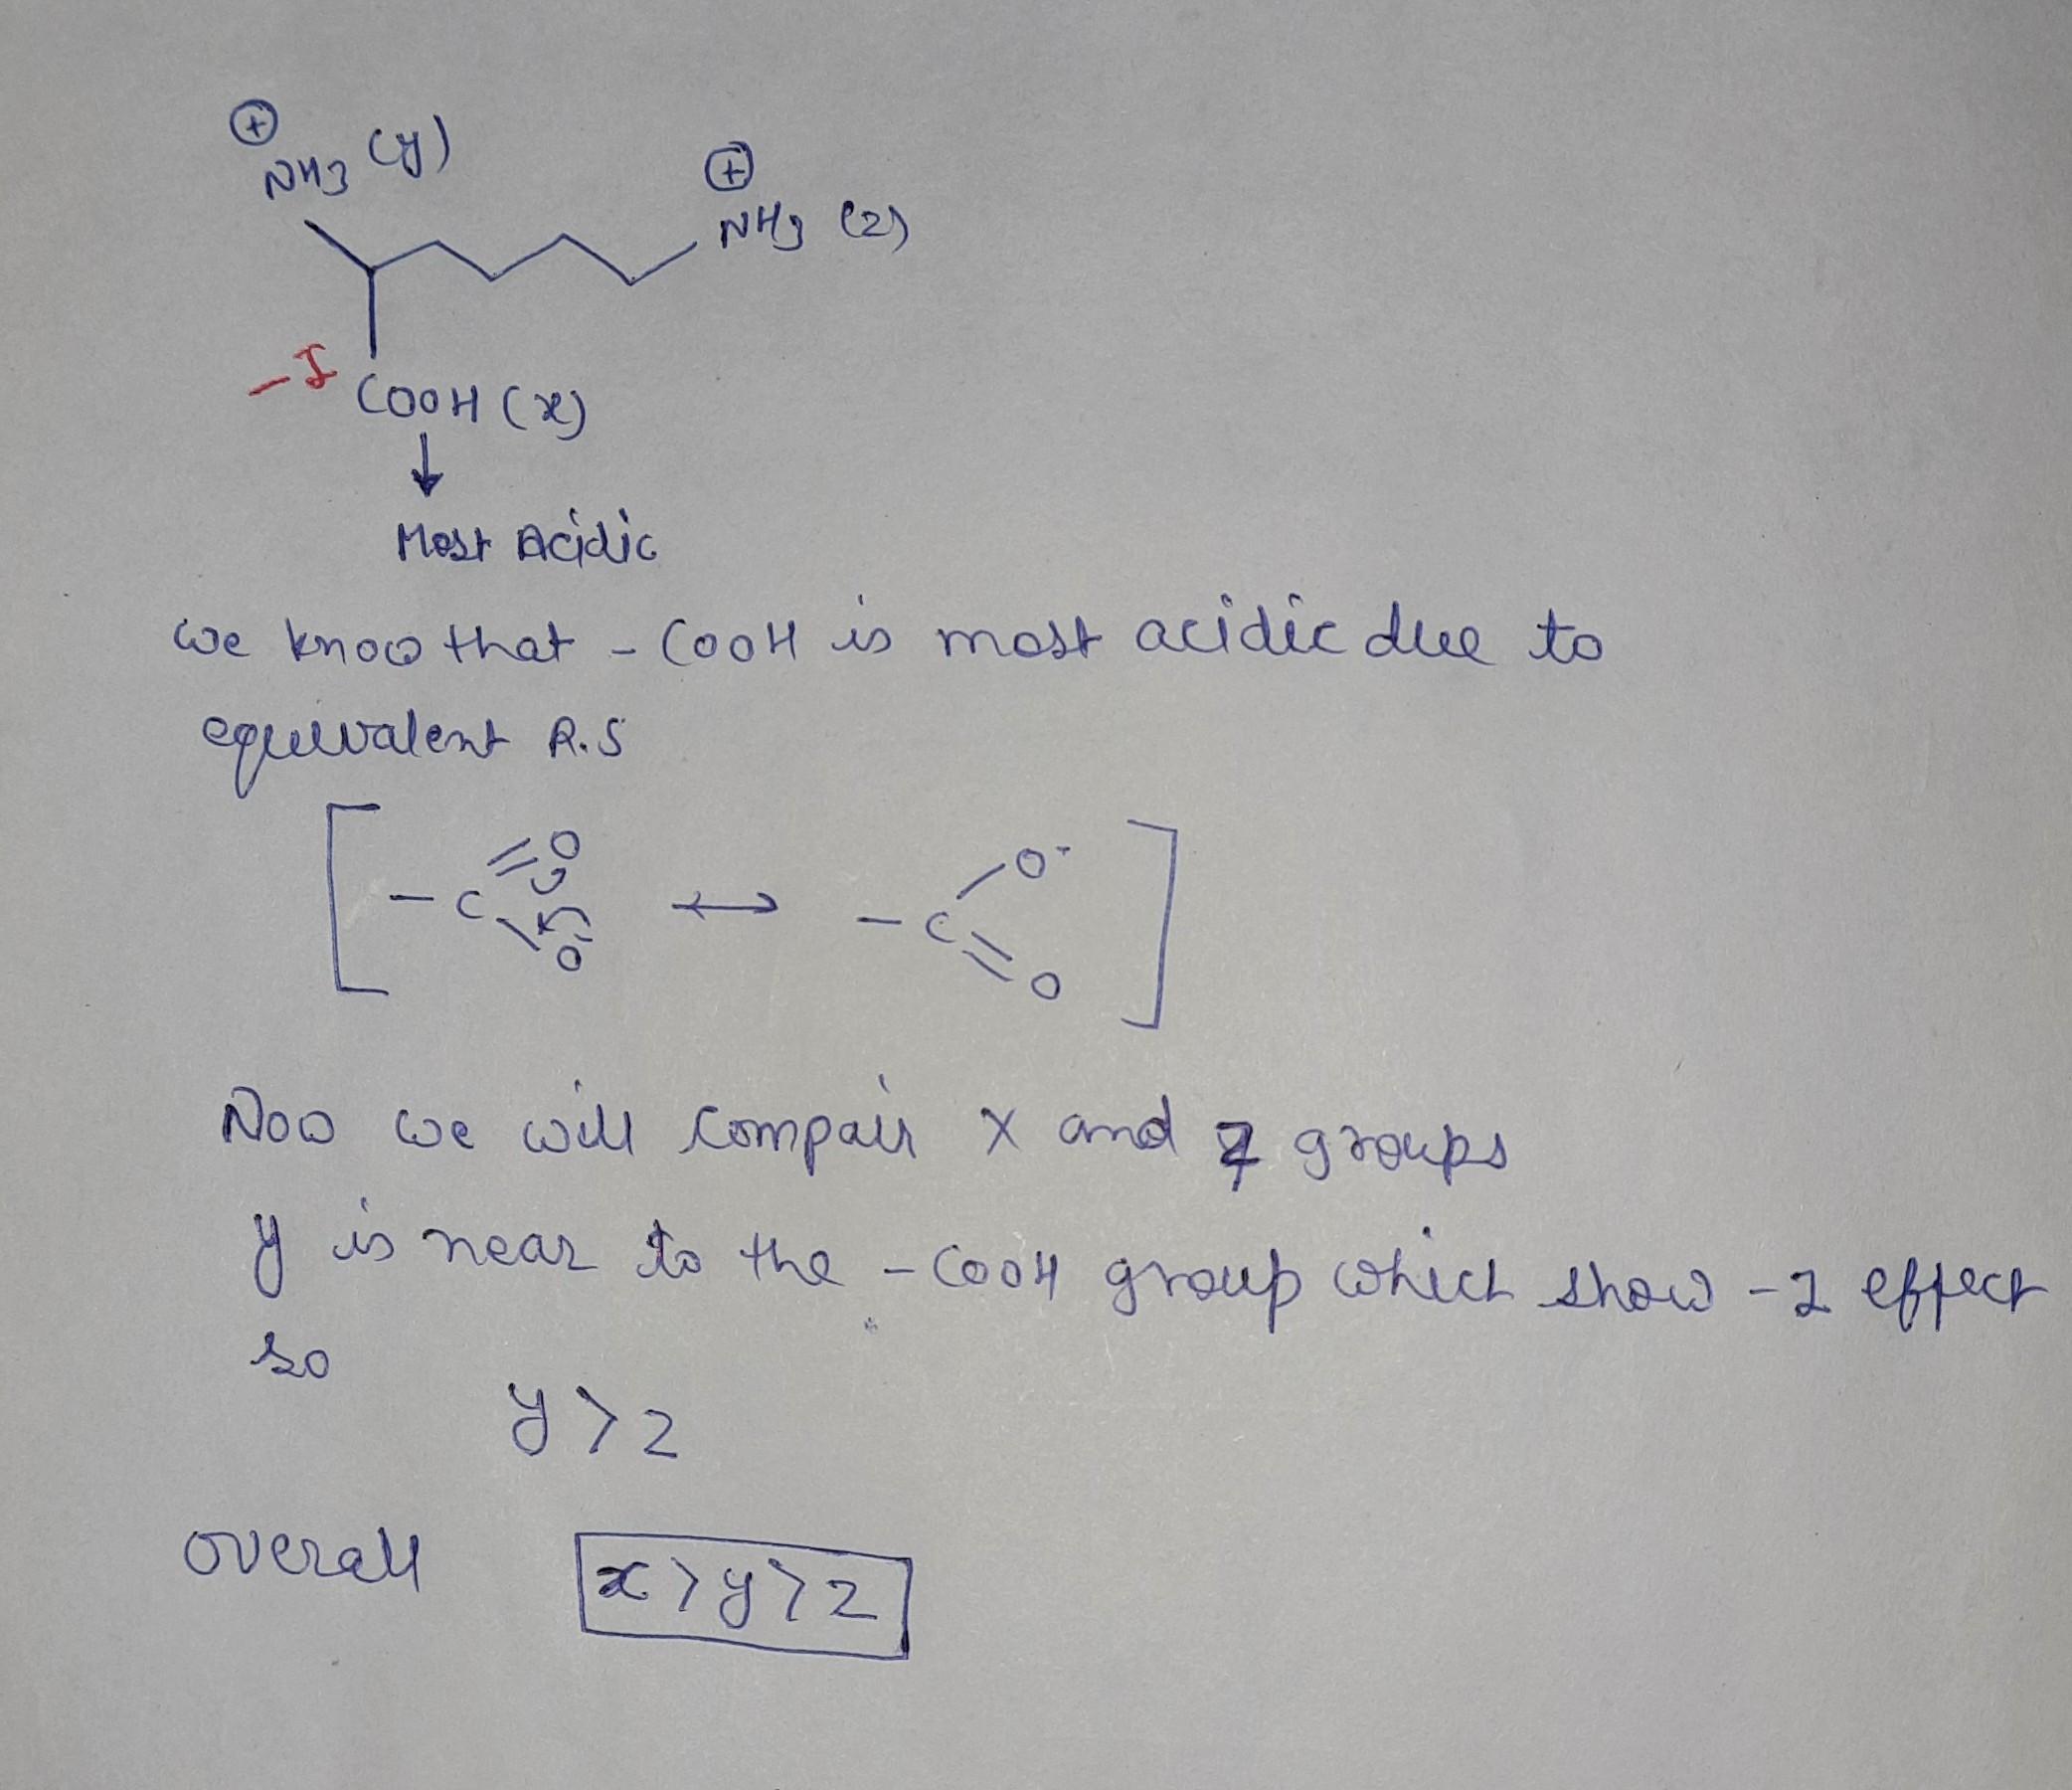 ⊕
NH3 (y)
⊕
NH3 (z)
-I
COOH (x)
↓
Most Acidic
we know that - COOH is most acidic due to
equivalent R.S
[ - C = O - O⁻ ↔ - C - O⁻ = O ]
Now we will compair x and groups
y is near to the - COOH group which show -I effect
so
y > z
overall
x > y > z